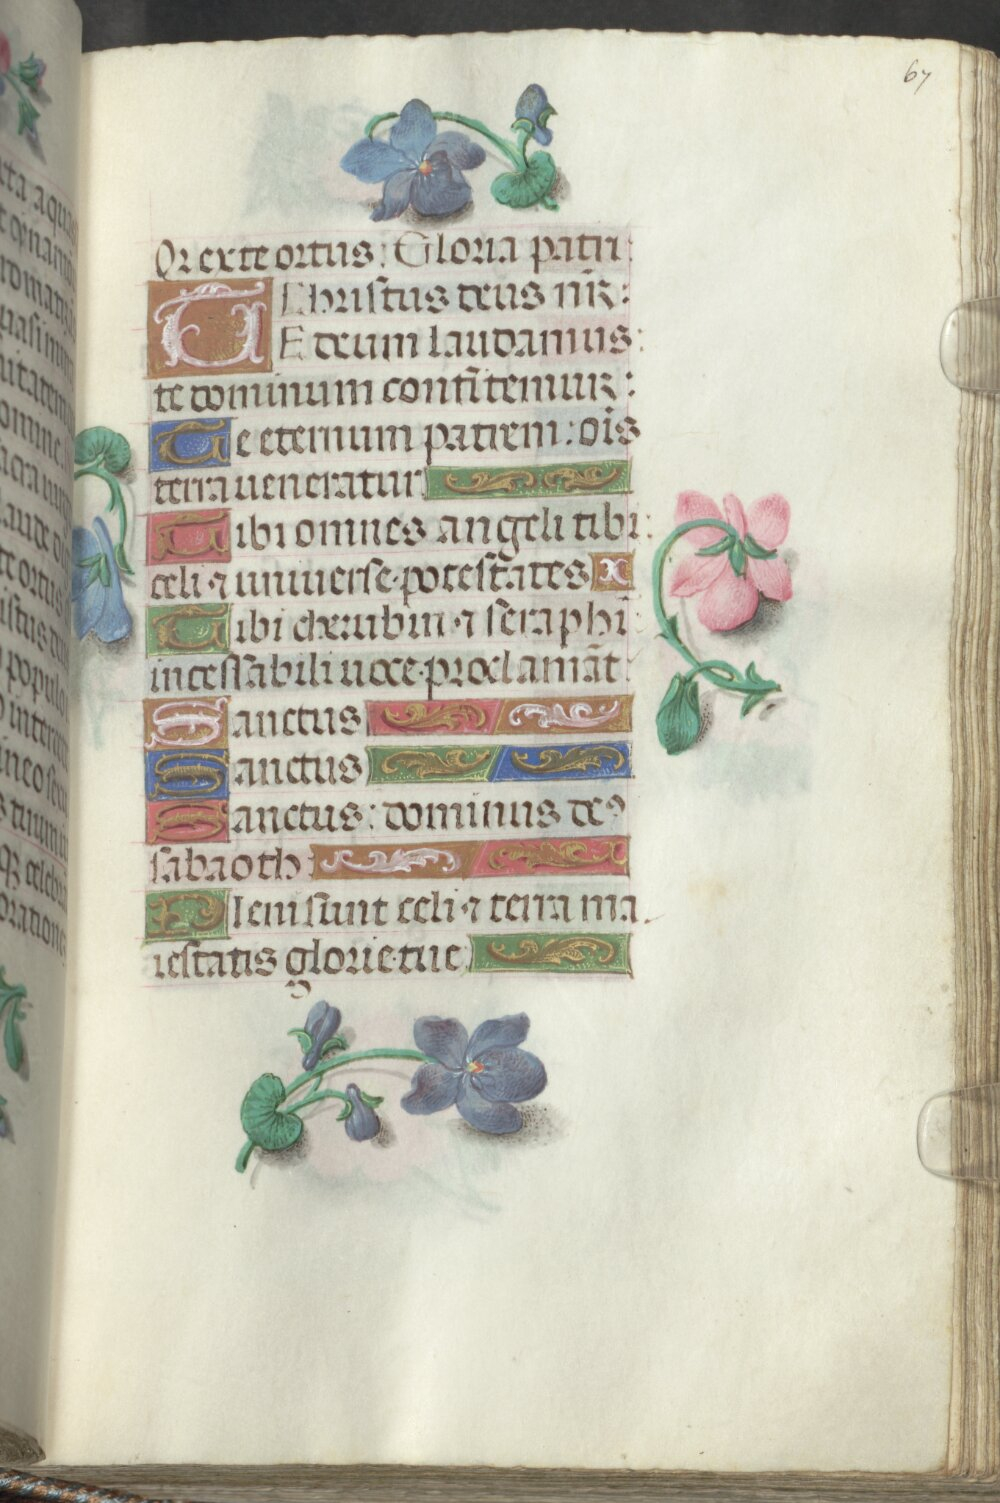 67
Qr ex te ortus: Gloria patri:
Christus deus nr̄:
TE deum laudamus:
te dominum confitemur:
Te eternum patrem: oīs
terra ueneratur
Tibi omnes angeli tibi:
celi ⁊ uniuerse potestates
Tibi cherubin ⁊ seraphī
incessabili uoce proclamāt:
Sanctus
Sanctus
Sanctus: dominus deꝰ
sabaoth
Pleni sunt celi ⁊ terra ma
iestatis glorie tue